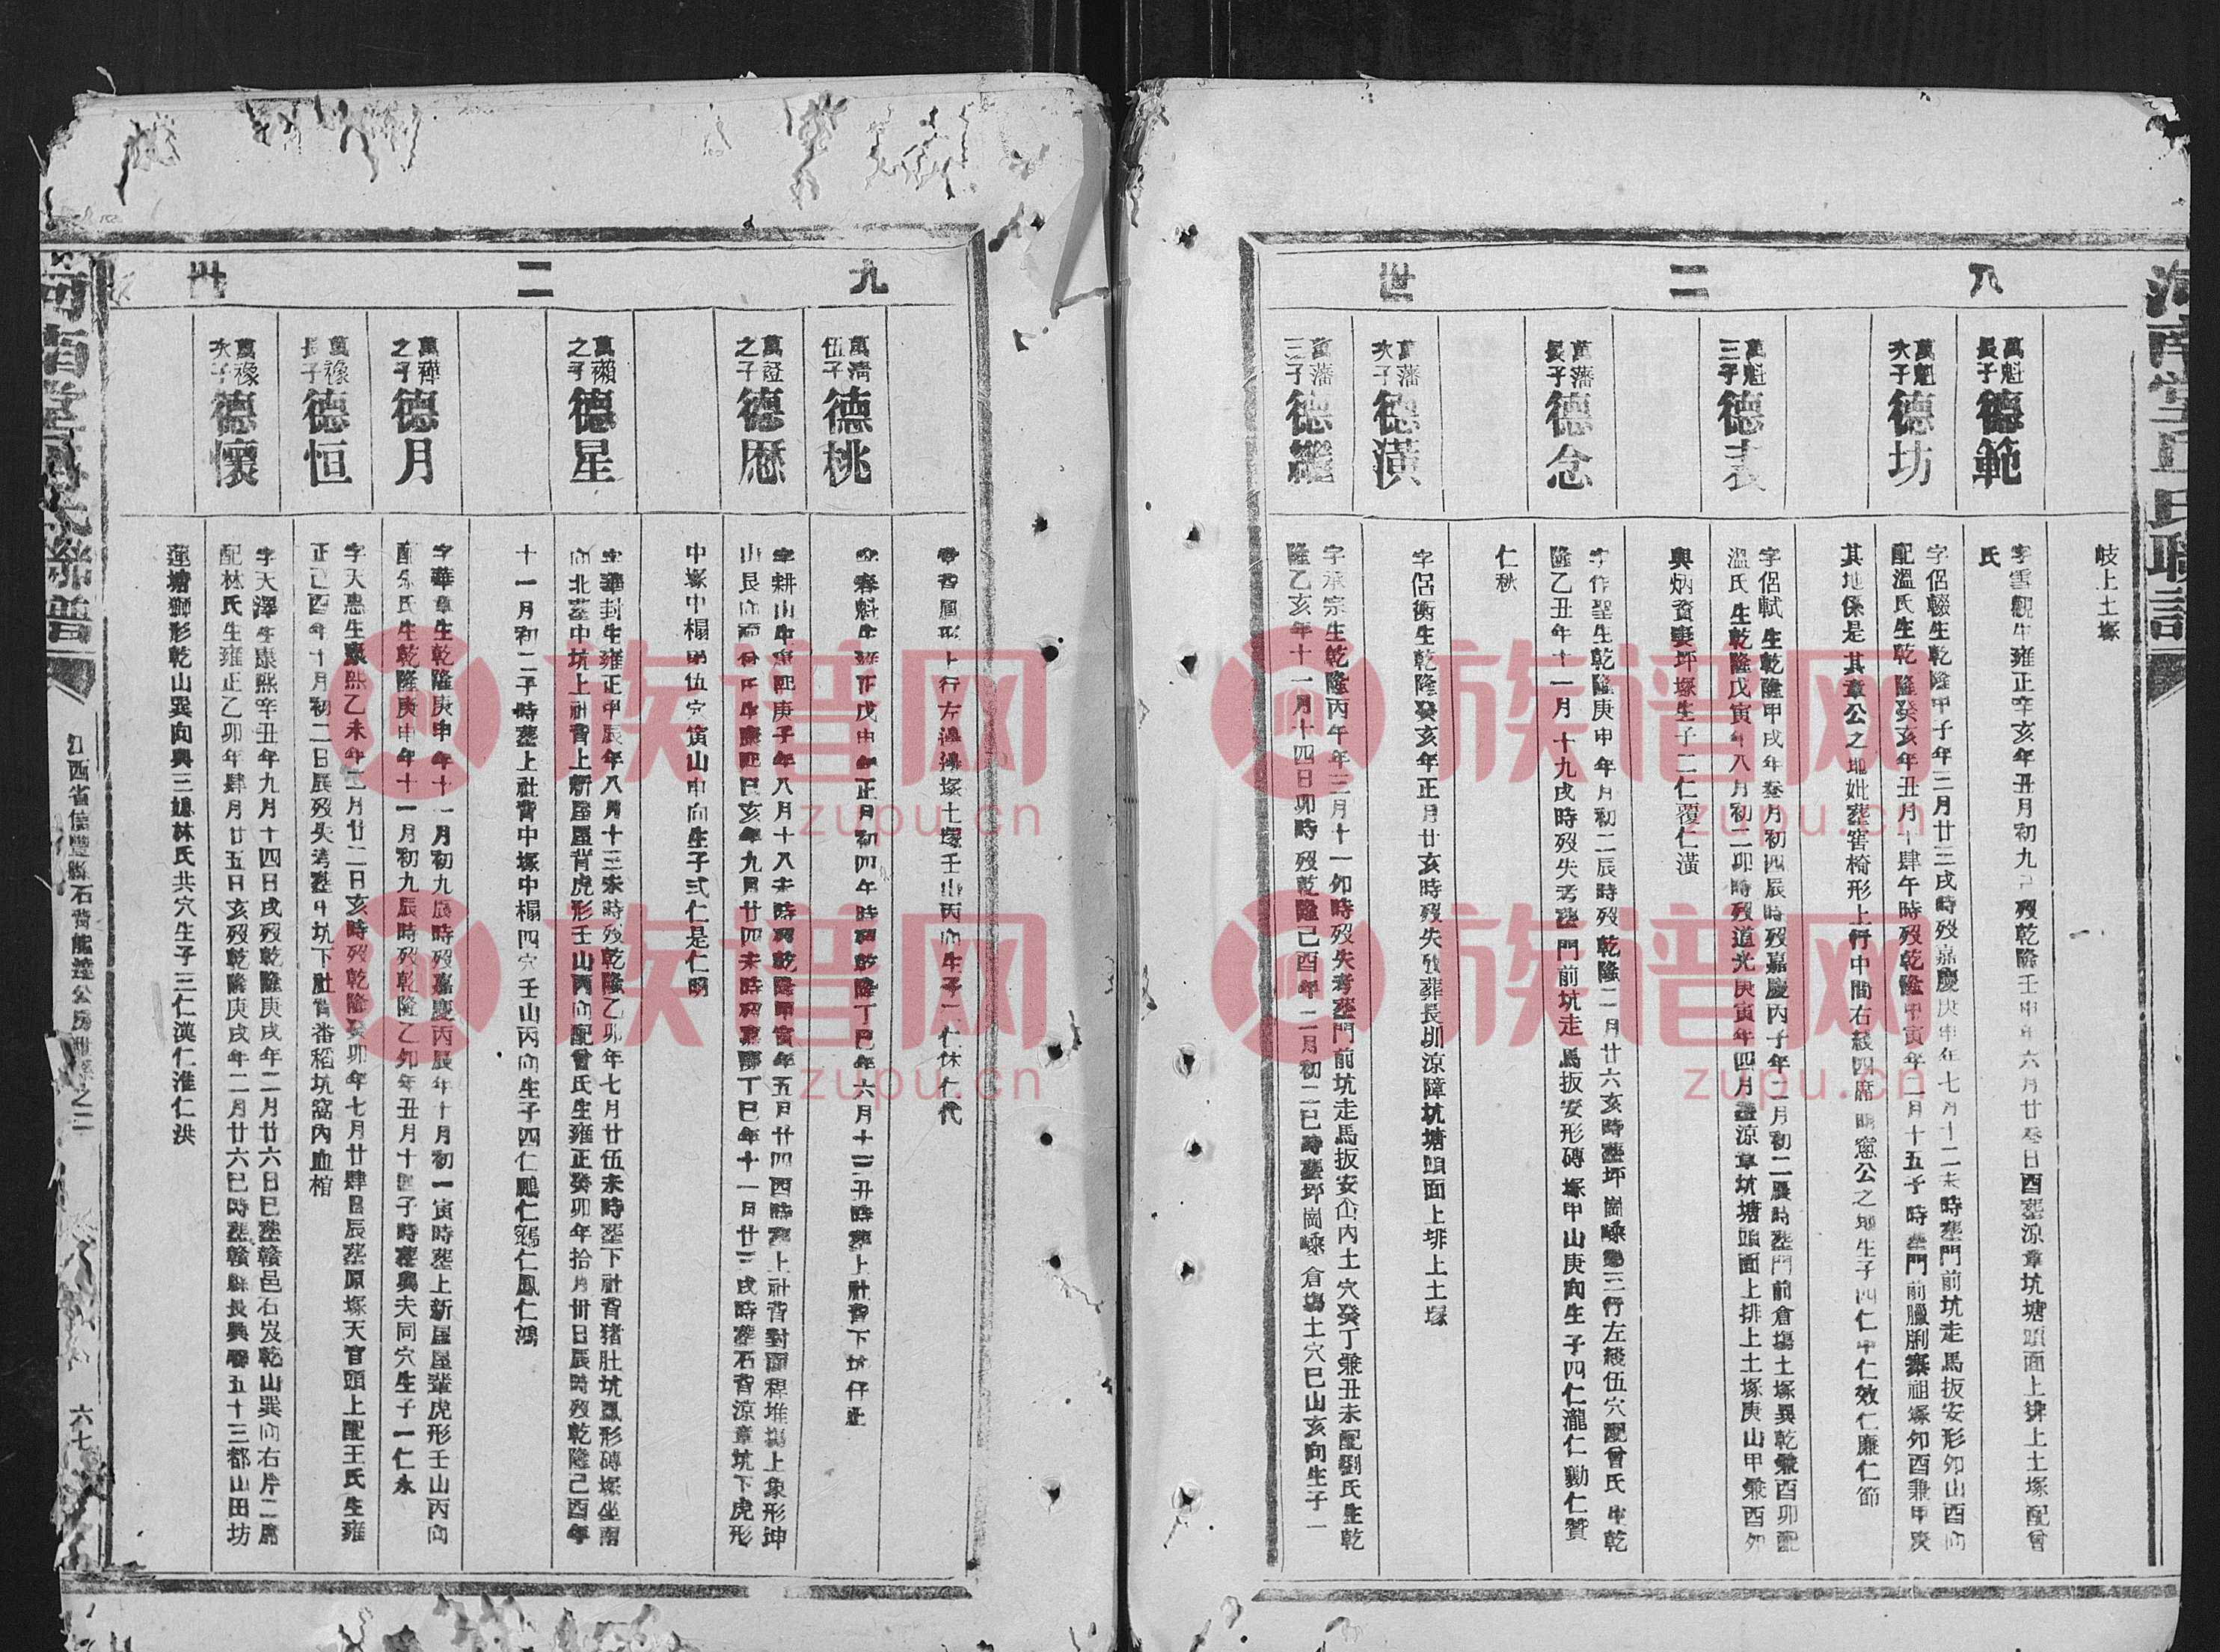 河南堂丘氏聯譜
八
二
世
岐上土塚
萬魁長子
德範
字雲觀生雍正辛亥年丑月初九 歿乾隆壬申年六月廿叁日酉塟凉章坑塘頭面上排上土塚配曾
氏
萬魁次子
德坊
字侶輟生乾隆甲子年三月廿三戌時歿嘉慶庚申年七月十二未時塟門前坑走馬扳安形夘山酉向
配溫氏生乾隆癸亥年丑月十肆午時歿乾隆甲寅年二月十五子時塟門前臘脷寨祖塚夘酉兼甲庚
其地係是其章公之地妣塟窖椅形上行中間右綫四席 公之地生子四仁中仁效仁廉仁節
萬魁三子
德表
字侶軾生乾隆甲戌年叁月初四辰時歿嘉慶丙子年二月初二辰時塟門前倉塲土塚巽乾兼酉卯配
溫氏生乾隆戊寅年八月初二卯時歿道光庚寅年四月塟凉章坑塘頭面上排上土塚庚山甲兼酉夘
與炳 坪塚生子二仁覆仁潢
萬藩長子
德念
字作聖生乾隆庚申年 月初二辰時歿乾隆 二月廿六亥時塟坪崗嵊 三行左綫伍穴配曾氏生乾
隆乙丑年十一月十九戌時歿失考塟門前坑走馬扳安形磚塚甲山庚向生子四仁瀧仁勷仁贊
仁秋
萬藩次子
德潢
字侶衡生乾隆癸亥年正月廿亥時歿失攷葬長圳涼障坑塘頭面上排上土塚
萬藩三子
德繼
字承宗生乾隆丙午年三月十一夘時歿失考塟門前坑走馬扳安 內土穴癸丁兼丑未配劉氏生乾
隆乙亥年十一月十四日卯時歿乾隆己酉年二月初二巳時塟坪崗嵊倉塲土穴巳山亥向生子一
九
二
世
 上行左 塚土塚壬山丙向生子二仁休仁代
萬清伍子
德桃
字春魁生雍正戊申年正月初四午時歿乾隆丁巳年六月十三丑時塟上社背下坑仔止
萬證之子
德愿
字耕山生康熙庚子年八月十八未時歿乾隆甲寅年五月廿四酉時塟上社背對面稈堆塲上象形坤
山艮向 己亥年九月廿四未時歿嘉慶丁巳年十一月廿三戌時塟石背凉章坑下虎形
中塚中榻 伍穴寅山申向生子式仁是仁明
萬瀨之子
德星
字華封生雍正甲辰年八月十三未時歿乾隆乙卯年七月廿伍未時塟下社背猪肚坑鳳形磚塚坐南
向北塟中坑上社背上新屋屋背虎形壬山丙向配曾氏生雍正癸卯年拾月卅日辰時歿乾隆己酉年
十一月初二子時塟上社背中塚中榻四穴壬山丙向生子四仁鵬仁鶏仁鳳仁鴻
萬禪之子
德月
字華章生乾隆庚申年十一月初九辰時歿嘉慶丙辰年十月初一寅時塟上新屋屋輋虎形壬山丙向
配 氏生乾隆庚申年十一月初九辰時歿乾隆乙夘年丑月十四子時塟與夫同穴生子一仁永
萬祿長子
德恒
字天惠生康熙乙未年二月廿二日亥時歿乾隆癸卯年七月廿肆日辰塟原塚天官頭上配王氏生雍
正己酉年十月初二日辰歿失考塟中坑下肚背番稻坑窩內血棺
萬祿次子
德懷
字天澤生康熙辛丑年九月十四日戌歿乾隆庚戌年二月廿六日巳塟贛邑石岌乾山巽向右片二席
配林氏生雍正乙卯年肆月廿五日亥歿乾隆庚戌年二月廿六巳時塟贛縣長興鄉五十三都山田坊
蓮塘獅形乾山巽向與三媳林氏共穴生子三仁漢仁淮仁洪
河南堂丘氏聯譜
江西省信豐縣石背能達公房世系之二
六十七
族谱网
zupu.cn
族谱网
zupu.cn
族谱网
zupu.cn
族谱网
zupu.cn